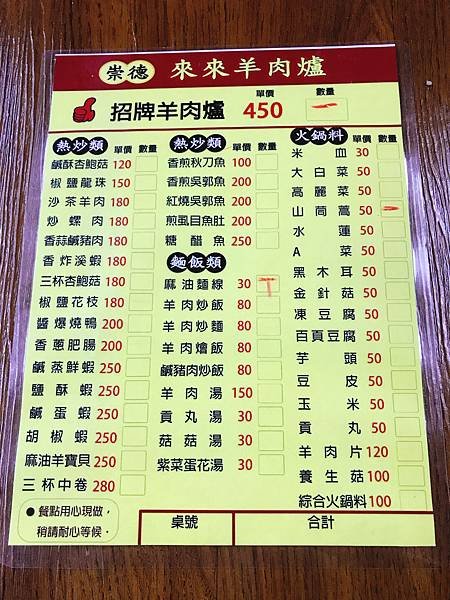 崇德 來來羊肉爐
單價 數量
招牌羊肉爐 450 一
熱炒類 單價 數量
鹹酥杏鮑菇 120
椒鹽龍珠 150
沙茶羊肉 180
炒螺肉 180
香蒜鹹豬肉 180
香炸溪蝦 180
三杯杏鮑菇 180
椒鹽花枝 180
醬爆燒鴨 200
香蔥肥腸 200
鹹蒸鮮蝦 250
鹽酥蝦 250
鹹蛋蝦 250
胡椒蝦 250
麻油羊寶貝 250
三杯中卷 280
熱炒類 單價 數量
香煎秋刀魚 100
香煎吳郭魚 200
紅燒吳郭魚 200
煎虱目魚肚 200
糖醋魚 250
麵飯類
麻油麵線 30 T
羊肉炒飯 80
羊肉炒麵 80
羊肉燴飯 80
鹹豬肉炒飯 80
羊肉湯 150
貢丸湯 30
菇菇湯 30
紫菜蛋花湯 30
火鍋料 單價 數量
米血 30
大白菜 50
高麗菜 50
山茼蒿 50 一
水蓮 50
A菜 50
黑木耳 50
金針菇 50
凍豆腐 50
百頁豆腐 50
芋頭 50
豆皮 50
玉米 50
貢丸 50
羊肉片 120
養生菇 100
綜合火鍋料 100
●餐點用心現做，
稍請耐心等候。
桌號 合計